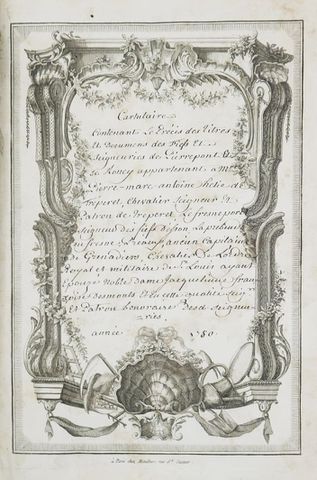 Cartulaire
Contenant Le Précis des Titres
Et Documens des Fiefs Et
Seigneuries de Pierrepont Et
de Roncy appartenant a Mre
Pierre-marc antoine de
Freperet, Chevalier Seigneur Et
Patron de Freperet, Le fresneport
Seigneur des fiefs
du fresne ancien Capitaine
de Grenadiers, Chevalier De Lordre
Royal et militaire de St Louis ayant
Epousé Noble dame Jacqueline fran
çoise desmonts Et en cette qualité Seig
Et Patron honoraire Desd Seigneu
ries.
année 1780
à Paris chez rue St Jacques